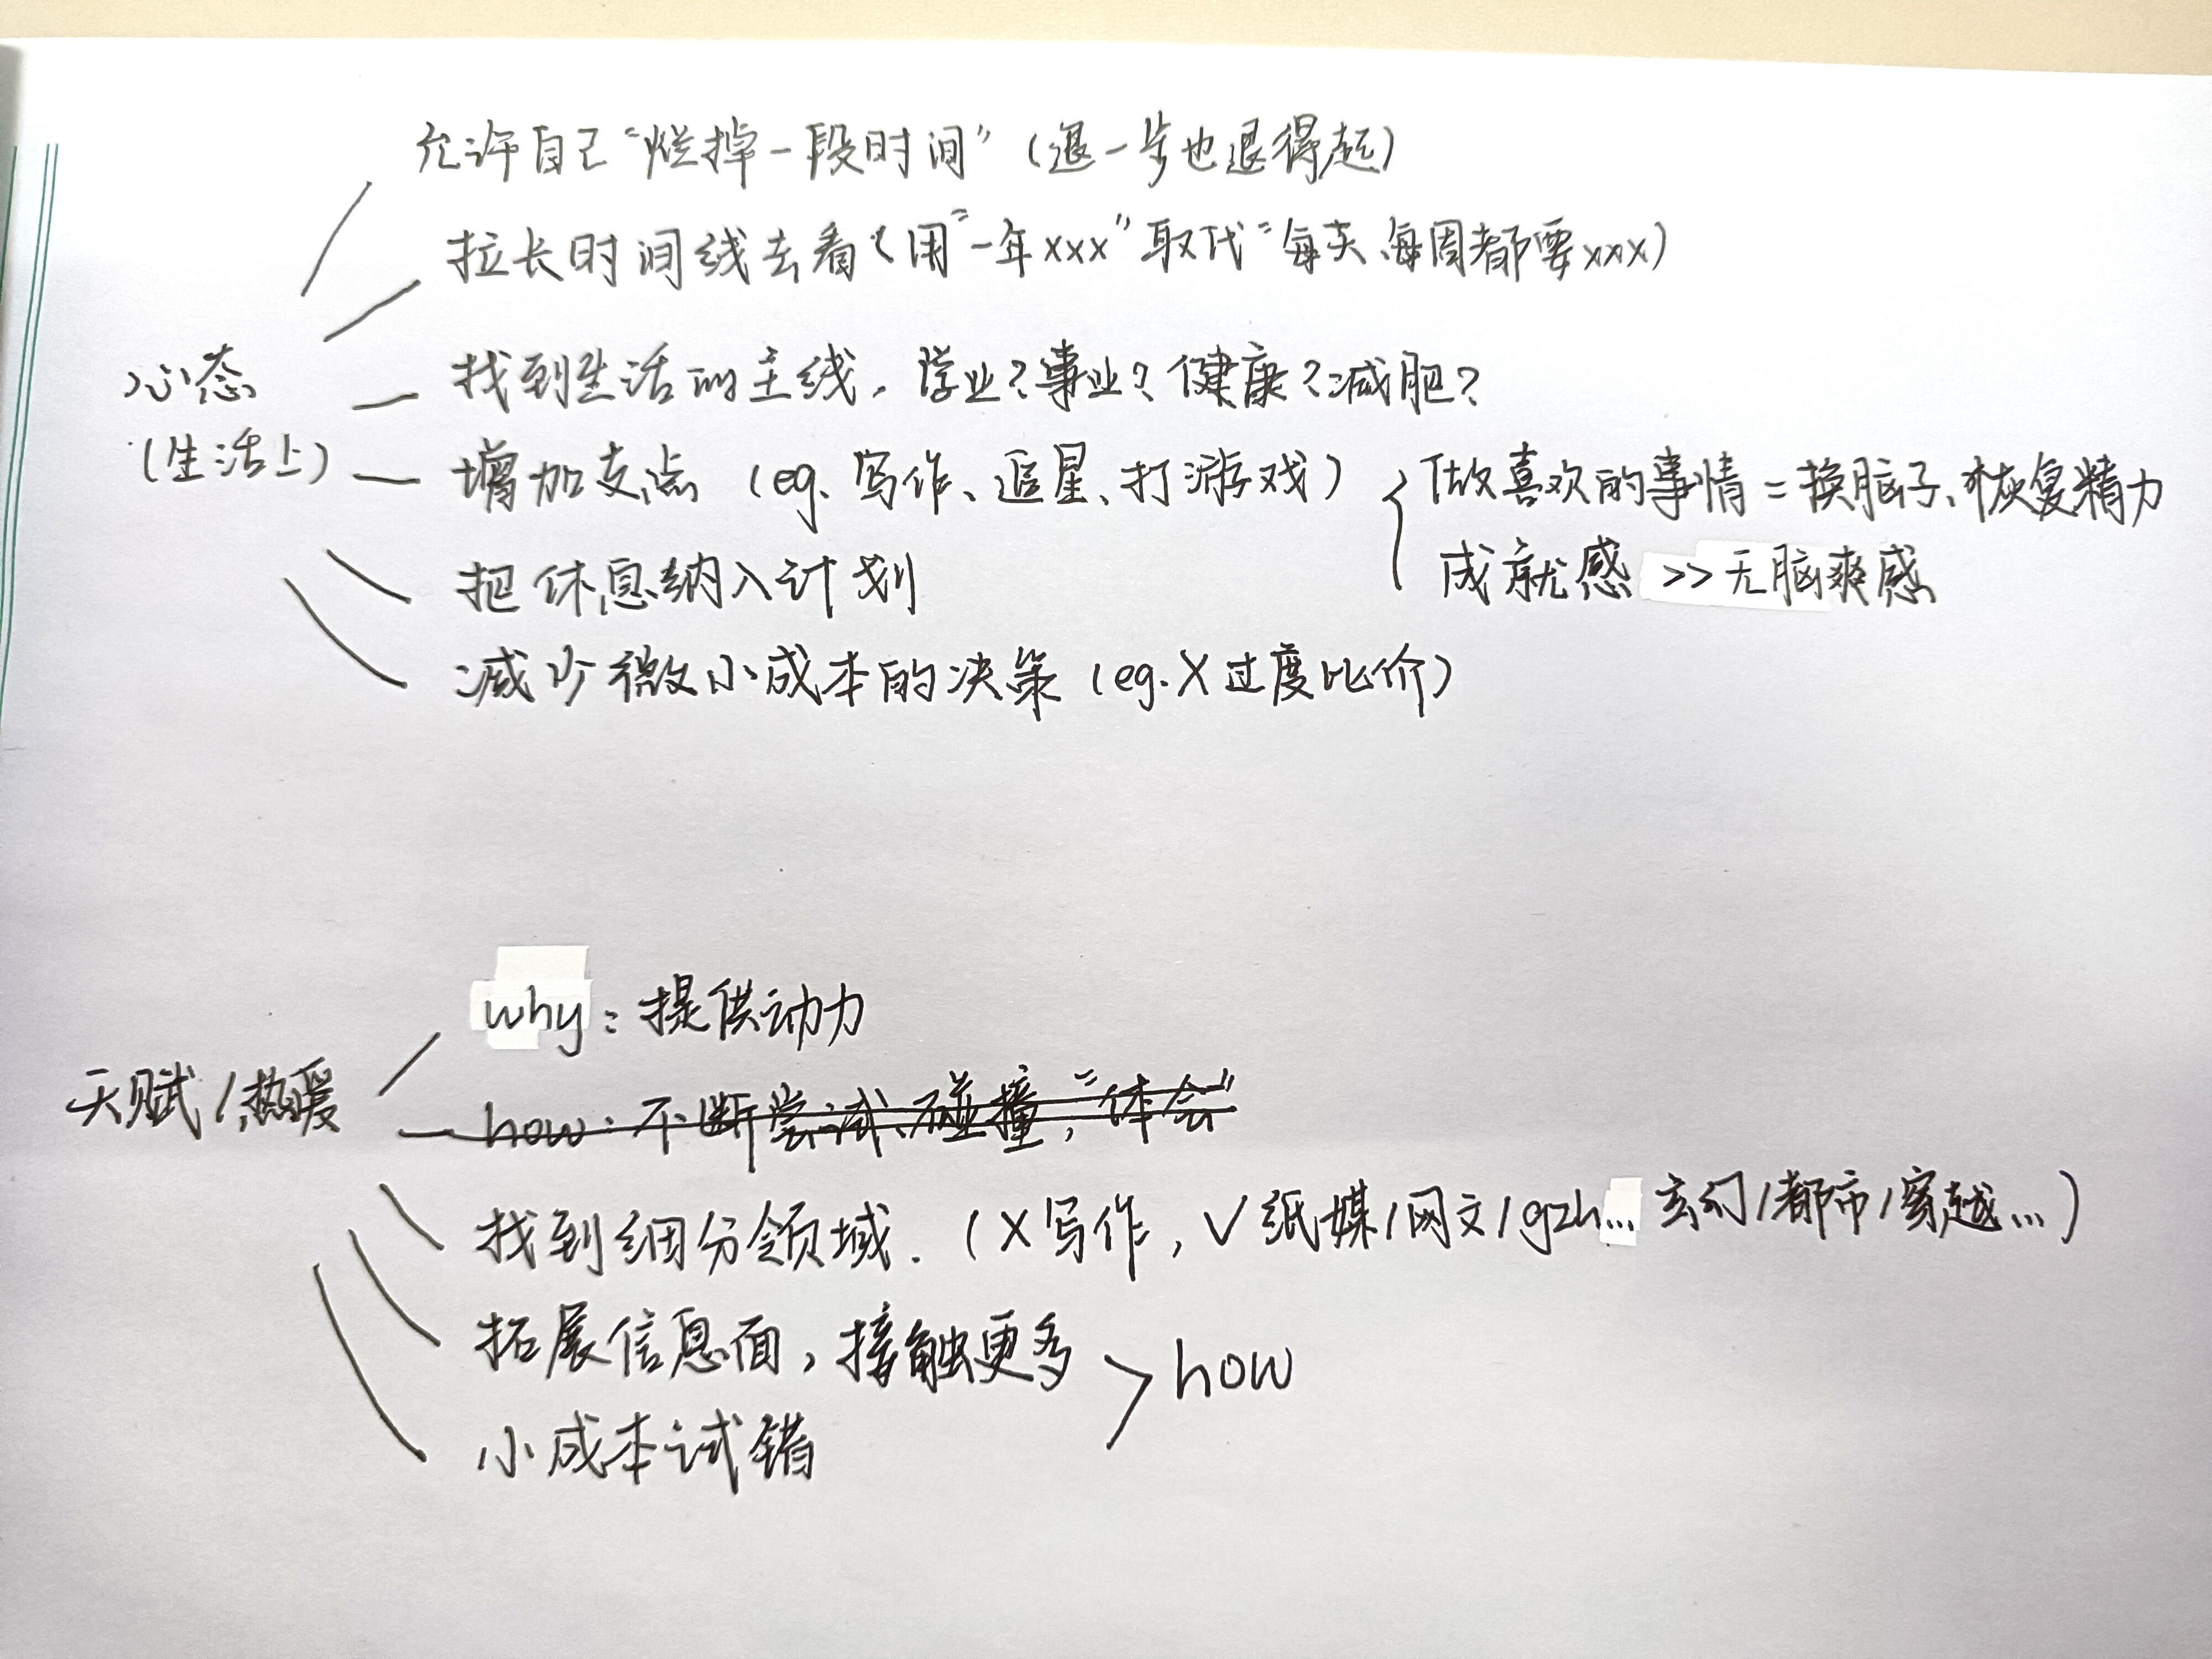 允许自己“烂掉一段时间”（退一步也退得起）
拉长时间线去看（用“一年xxx”取代“每天、每周都要xxx）
心态
（生活上）
找到生活的主线，学业？事业？健康？减肥？
增加支点（eg. 写作、追星、打游戏）
做喜欢的事情=换脑子、恢复精力
成就感 >> 无脑爽感
把休息纳入计划
减少微小成本的决策（eg. X过度比价）
天赋/热爱
why：提供动力
how：不断尝试、碰撞，“体会”
找到细分领域.（X写作，√纸媒/网文/gzh... 玄幻/都市/穿越...）
拓展信息面，接触更多
小成本试错
how